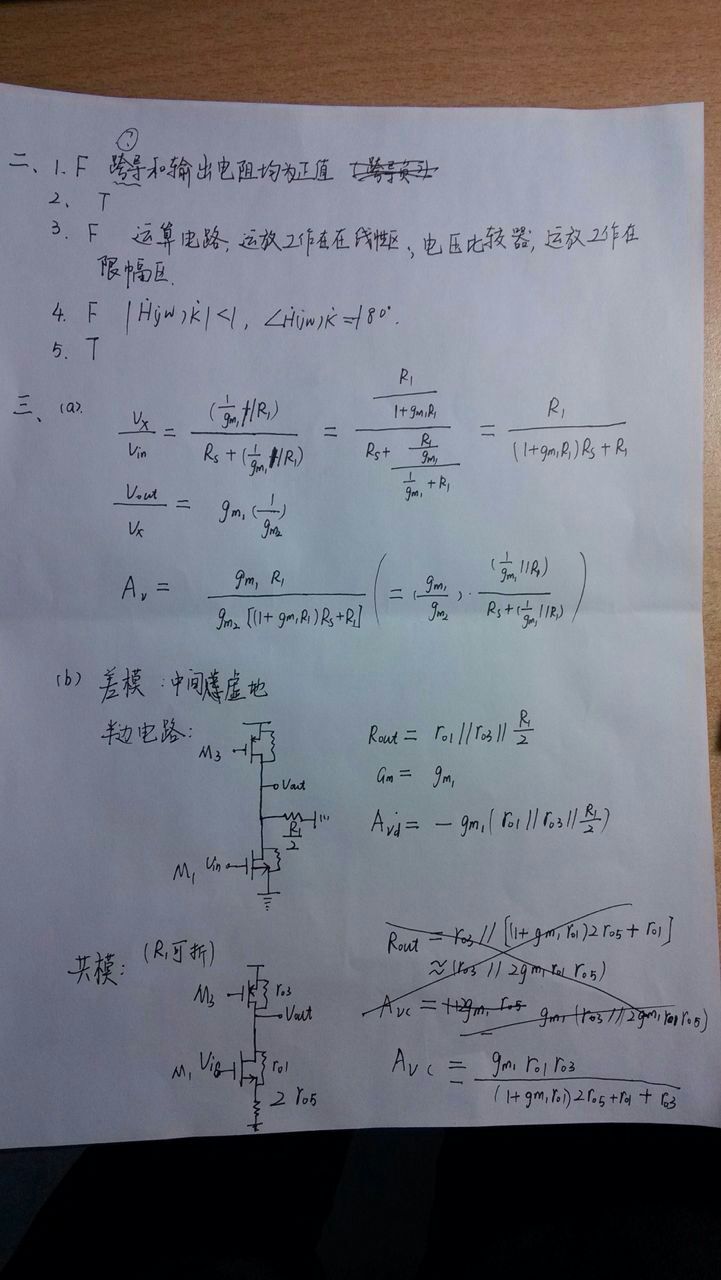 ?
二、1. F 跨导和输出电阻均为正值
2. T
3. F 运算电路,运放工作在在线性区;电压比较器,运放工作在
限幅区.
4. F |Ḣ(jw)k̇|<1, ∠Ḣ(jw)k̇=180°.
5. T
三、(a).
Vx/Vin = (1/gm1 // R1) / (Rs + (1/gm1 // R1)) = (R1/(1+gm1R1)) / (Rs + (R1/gm1)/(1/gm1 + R1)) = R1 / ((1+gm1R1)Rs + R1)
Vout/Vx = gm1 (1/gm2)
Av = gm1 R1 / (gm2 [(1+gm1R1)Rs+R1]) ( = (gm1/gm2) · (1/gm1 // R1) / (Rs + (1/gm1 // R1)) )
(b) 差模:中间虚地
半边电路:
M3
Vout
R1/2
M1 Vin
Rout = ro1 // ro3 // R1/2
Gm = gm1
Avd = - gm1 (ro1 // ro3 // R1/2)
共模: (R1可折)
M3 ro3
Vout
M1 Vin ro1
2 ro5
Rout = ro3 // [(1+gm1ro1)2ro5 + ro1]
≈ (ro3 // 2gm1ro1ro5)
Avc = gm1 (ro3 // 2gm1ro1ro5)
Avc = gm1 ro1 ro3 / ((1+gm1ro1)2ro5 + ro1 + ro3)